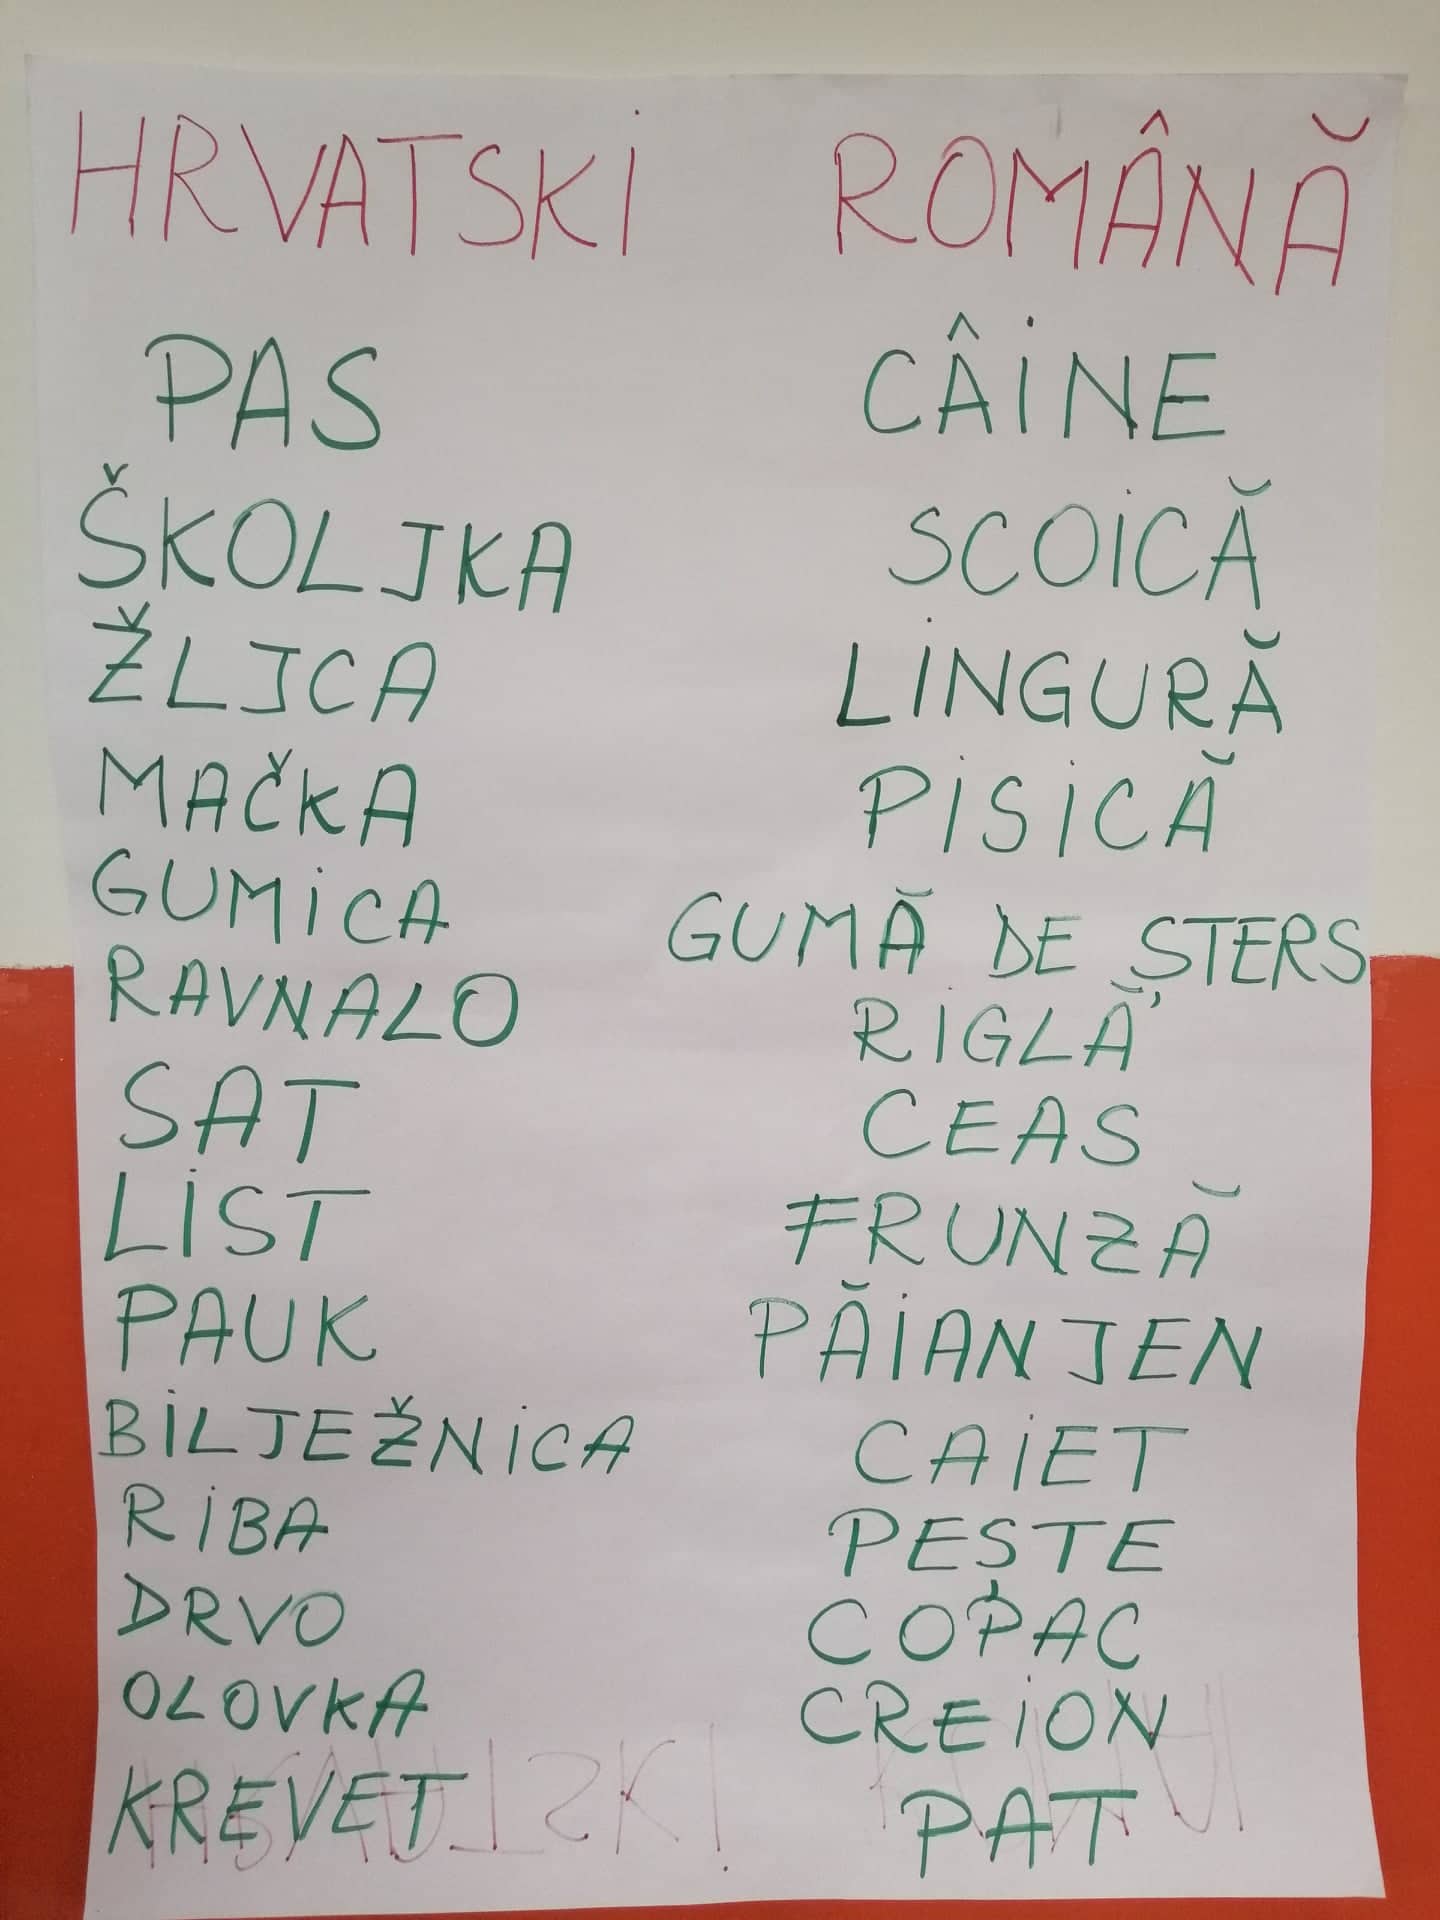 HRVATSKI ROMÂNĂ
PAS CÂINE
ŠKOLJKA SCOICĂ
ŽLJCA LINGURĂ
MAČKA PISICĂ
GUMICA GUMĂ DE ȘTERS
RAVNALO RIGLĂ
SAT CEAS
LIST FRUNZĂ
PAUK PĂIANJEN
BILJEŽNICA CAIET
RIBA PEȘTE
DRVO COPAC
OLOVKA CREION
KREVET PAT